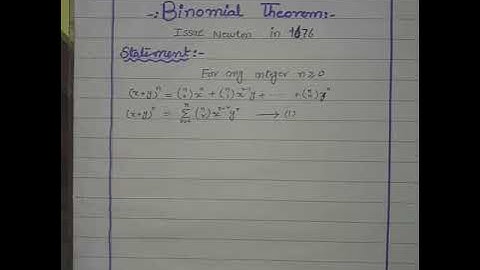 -:Binomial Theorem:-
Issac Newton in 1676
Statement:-
For any integer n≥0
(x+y)ⁿ = (ⁿ₀)xⁿ + (ⁿ₁)xⁿ⁻¹y + ...... + (ⁿₙ)yⁿ
(x+y)ⁿ = Σⁿᵣ₌₀ (ⁿᵣ)xⁿ⁻ʳyʳ ⟶ (1)